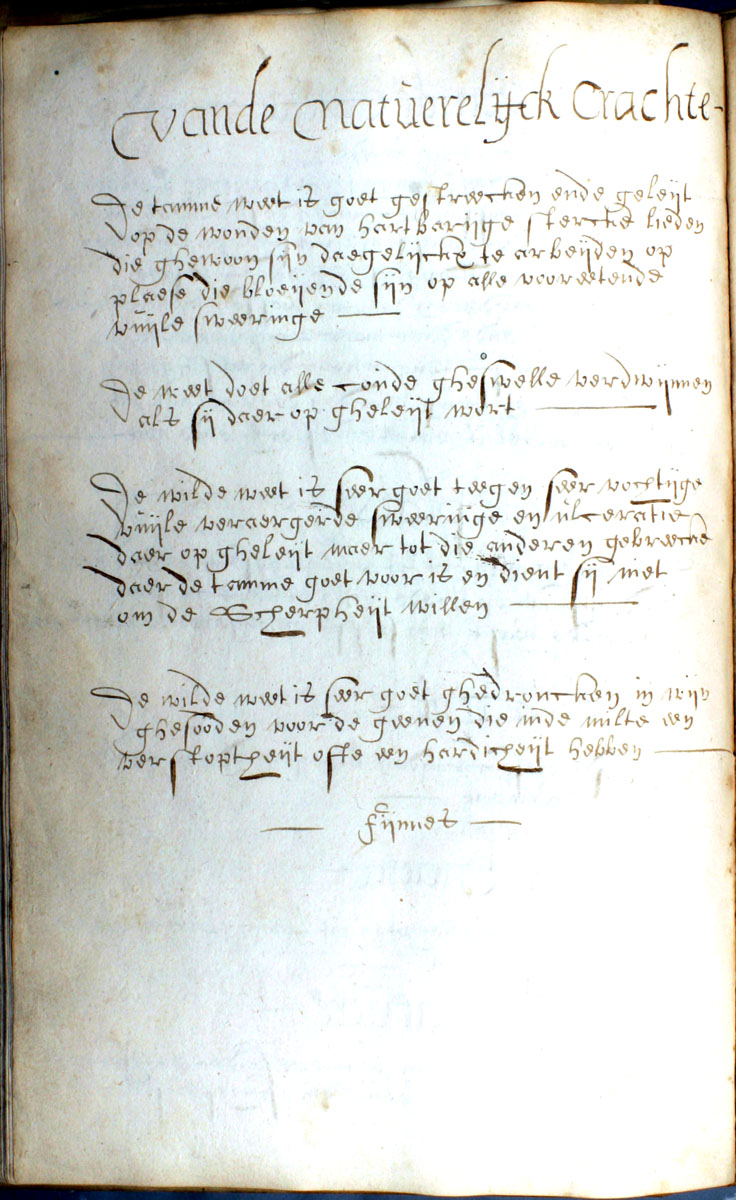 Vande Natuerelijck Crachte-
De tamme weet is goet gestreecken ende geleijt
op de wonden van hartbarijge stercke lieden
die ghewoon sijn daegelijckx te arbeijden op
plaese die bloeijende sijn op alle vooreetende
vuijle sweeringe
De weet doet alle coude gheswelle verdwijnnen
als sij daer op gheleijt wort
De wilde weet is seer goet teegen seer vochtijge
vuijle veraergerde sweerijnge en ulceratie
daer op gheleijt maer tot die anderen gebreecke
daer de tamme goet voor is en dient sij niet
om de Scherpheijt willen
De wilde weet is seer goet ghedroncken in wijn
ghesooden voor de geenen die inde milte een
verstoptheijt ofte een hardicheijt hebben
fijnnes